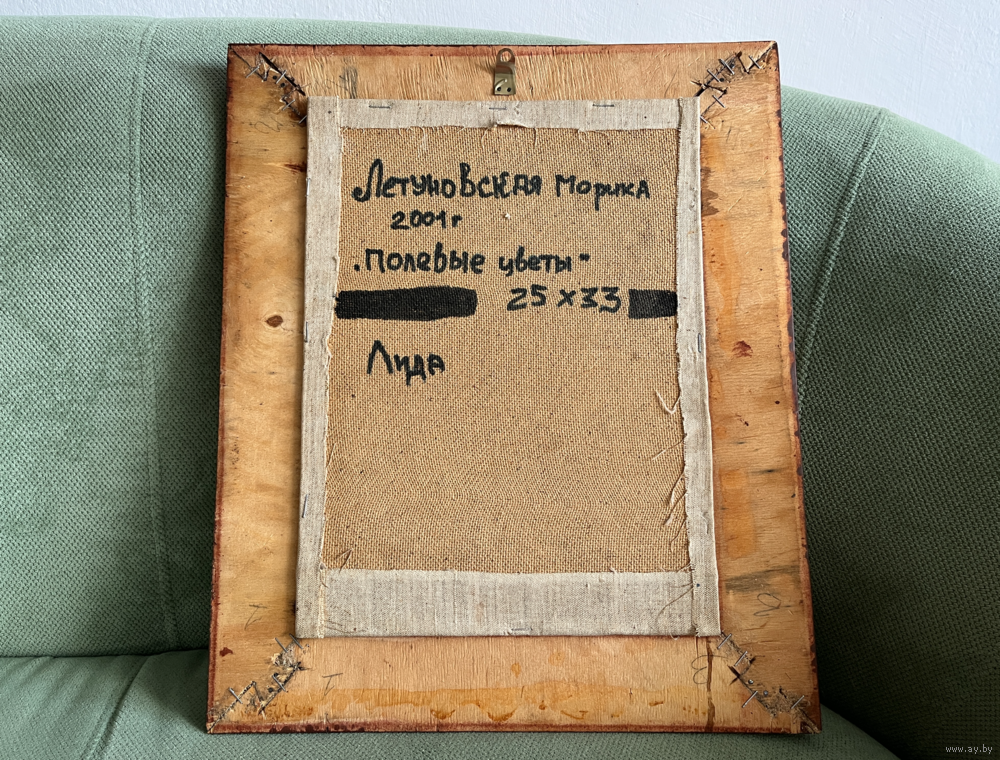 Летуновская Морика
2001г
"Полевые цветы"
25x33
Лида
www.ay.by